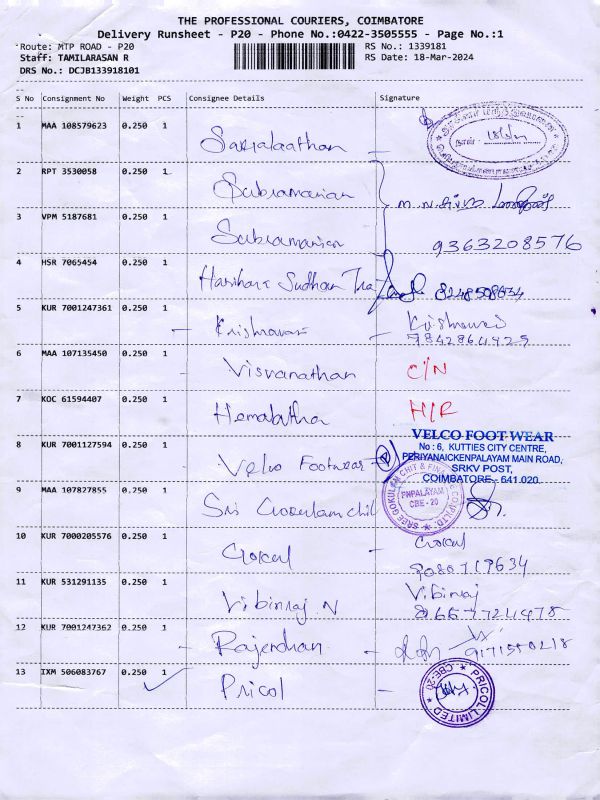 THE PROFESSIONAL COURIERS, COIMBATORE
Delivery Runsheet - P20 - Phone No.:0422-3505555 - Page No.:1
Route: MTP ROAD - P20
RS No.: 1339181
Staff: TAMILARASAN R
RS Date: 18-Mar-2024
DRS No.: DCJB133918101
S No Consignment No Weight PCS Consignee Details Signature
1 MAA 108579623 0.250 1
2 RPT 3530058 0.250 1 Subramanian
3 VPM 5187681 0.250 1 Subramanian
9363208576
4 HSR 7065454 0.250 1 Hariharı Sudhan
5 KUR 7001247361 0.250 1 - Krishnaveni Krishnaveni
7842864925
6 MAA 107135450 0.250 1 - Visvanathan C/N
7 KOC 61594407 0.250 1 Hemalatha H/R
VELCO FOOT WEAR
No : 6, KUTTIES CITY CENTRE,
PERIYANAICKENPALAYAM MAIN ROAD,
SRKV POST,
COIMBATORE - 641 020.
8 KUR 7001127594 0.250 1 Velco Footwear
9 MAA 107827855 0.250 1 Sri Gokulam chit
SREE GOKULAM CHIT & FINANCE CO (P) LTD.
PNPALAYAM
CBE - 20
10 KUR 7000205576 0.250 1 Gokul - Gokul
9080719634
11 KUR 531291135 0.250 1 Vibinraj N Vibinraj
12 KUR 7001247362 0.250 1 - -
9171550218
13 IXM 506083767 0.250 1 ✓ Pricol -
PRICOL LIMITED
CBE-20